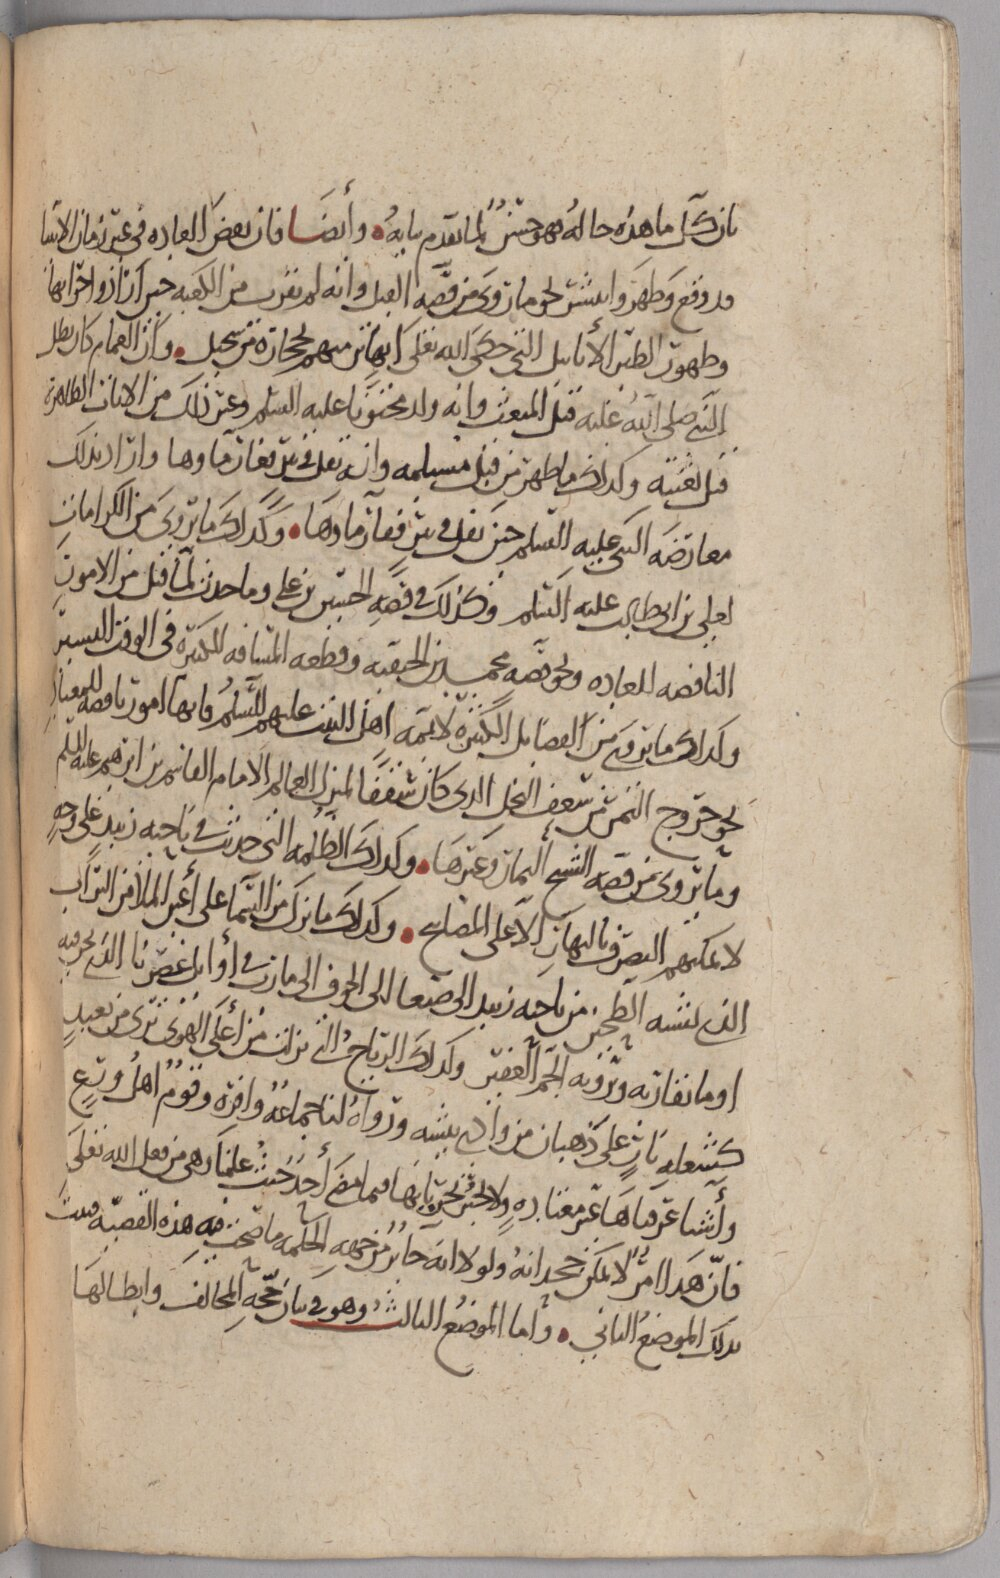 بان كل ما هذه حاله فهو حسنٌ لما تقدم بيانه وأيضا فان بعض العاده في غير زمان الانبيا
قد وقع وظهر وانتشر نحو ما روى من قصه الفيل وانه لم يقرب من الكعبه حين ارادوا خرابها
وظهرت الطير الأبابيل التي حكى الله تعلى انها ترميهم بحجارة من سجيل وكان الغمام كان يظلل
النبي صلى الله عليه قبل المبعث وانه ولد مختونا عليه السلم وغير ذلك من الايات الظاهرة
قبل بعثته وكذلك ما ظهر من قبل مسيلمه وانه تفل في بير فغار ماوها واراد بذلك
معارضه النبي عليه السلم حين تفل في بير ففار ماوها وكذلك ما يروى من الكرامات
لعلي بن ابي طالب عليه السلم وكذلك في قصه الحسين بن علي وما حدث لما قتل من الامور
الناقضه للعاده ونحو قصه محمد بن الحنفيه وقطعه المسافه الكثيره في الوقت اليسير
وكذلك ما يروى من الفضايل الكثيره لايمه اهل البيت عليهم السلم فانها امور ناقضه للعاده
نحو خروج التمر من سعف النخل الذي كان سقفا لمنزل العالم الامام القاسم بن ابرهيم عليه السلم
وما يروى من قصه الشيخ اليمان وغيرها وكذلك الظلمه التي حدثت في ناحيه زبيد على وجهٍ
لا يمكنهم التصرف بالنهار الا على المصابيح وكذلك ما نزل من السما على أغبر الملا من التراب
الذي يشبه الطحين من ناحيه زبيد الى صنعا الى الجوف الى مارب في أوايل عصرنا الذي نحن فيه
او ما يقاربه وترويه الجم الغفير وكذلك الرياح التي نزلت من أعلى الهوى ترى من بعيدٍ
كشعله نارٍ على ذهبان من وادي بيشه ورواه لنا جماعةٌ وافره وقومٌ اهل ورعٍ
وأشيا عرفناها غير معتاده ولا نخبر نحن بانها فيما مضى أحدثت علمنا وهي من فعل الله تعلى
فانّ هذا امرٌ لا يمكن جحدانه ولولا انه جايز من جهه الحكمه ما صحت فيه هذه القضيه فثبت
بذلك الموضع الثاني وأما الموضع الثالث وهو في بيان حجه المخالف وابطالها